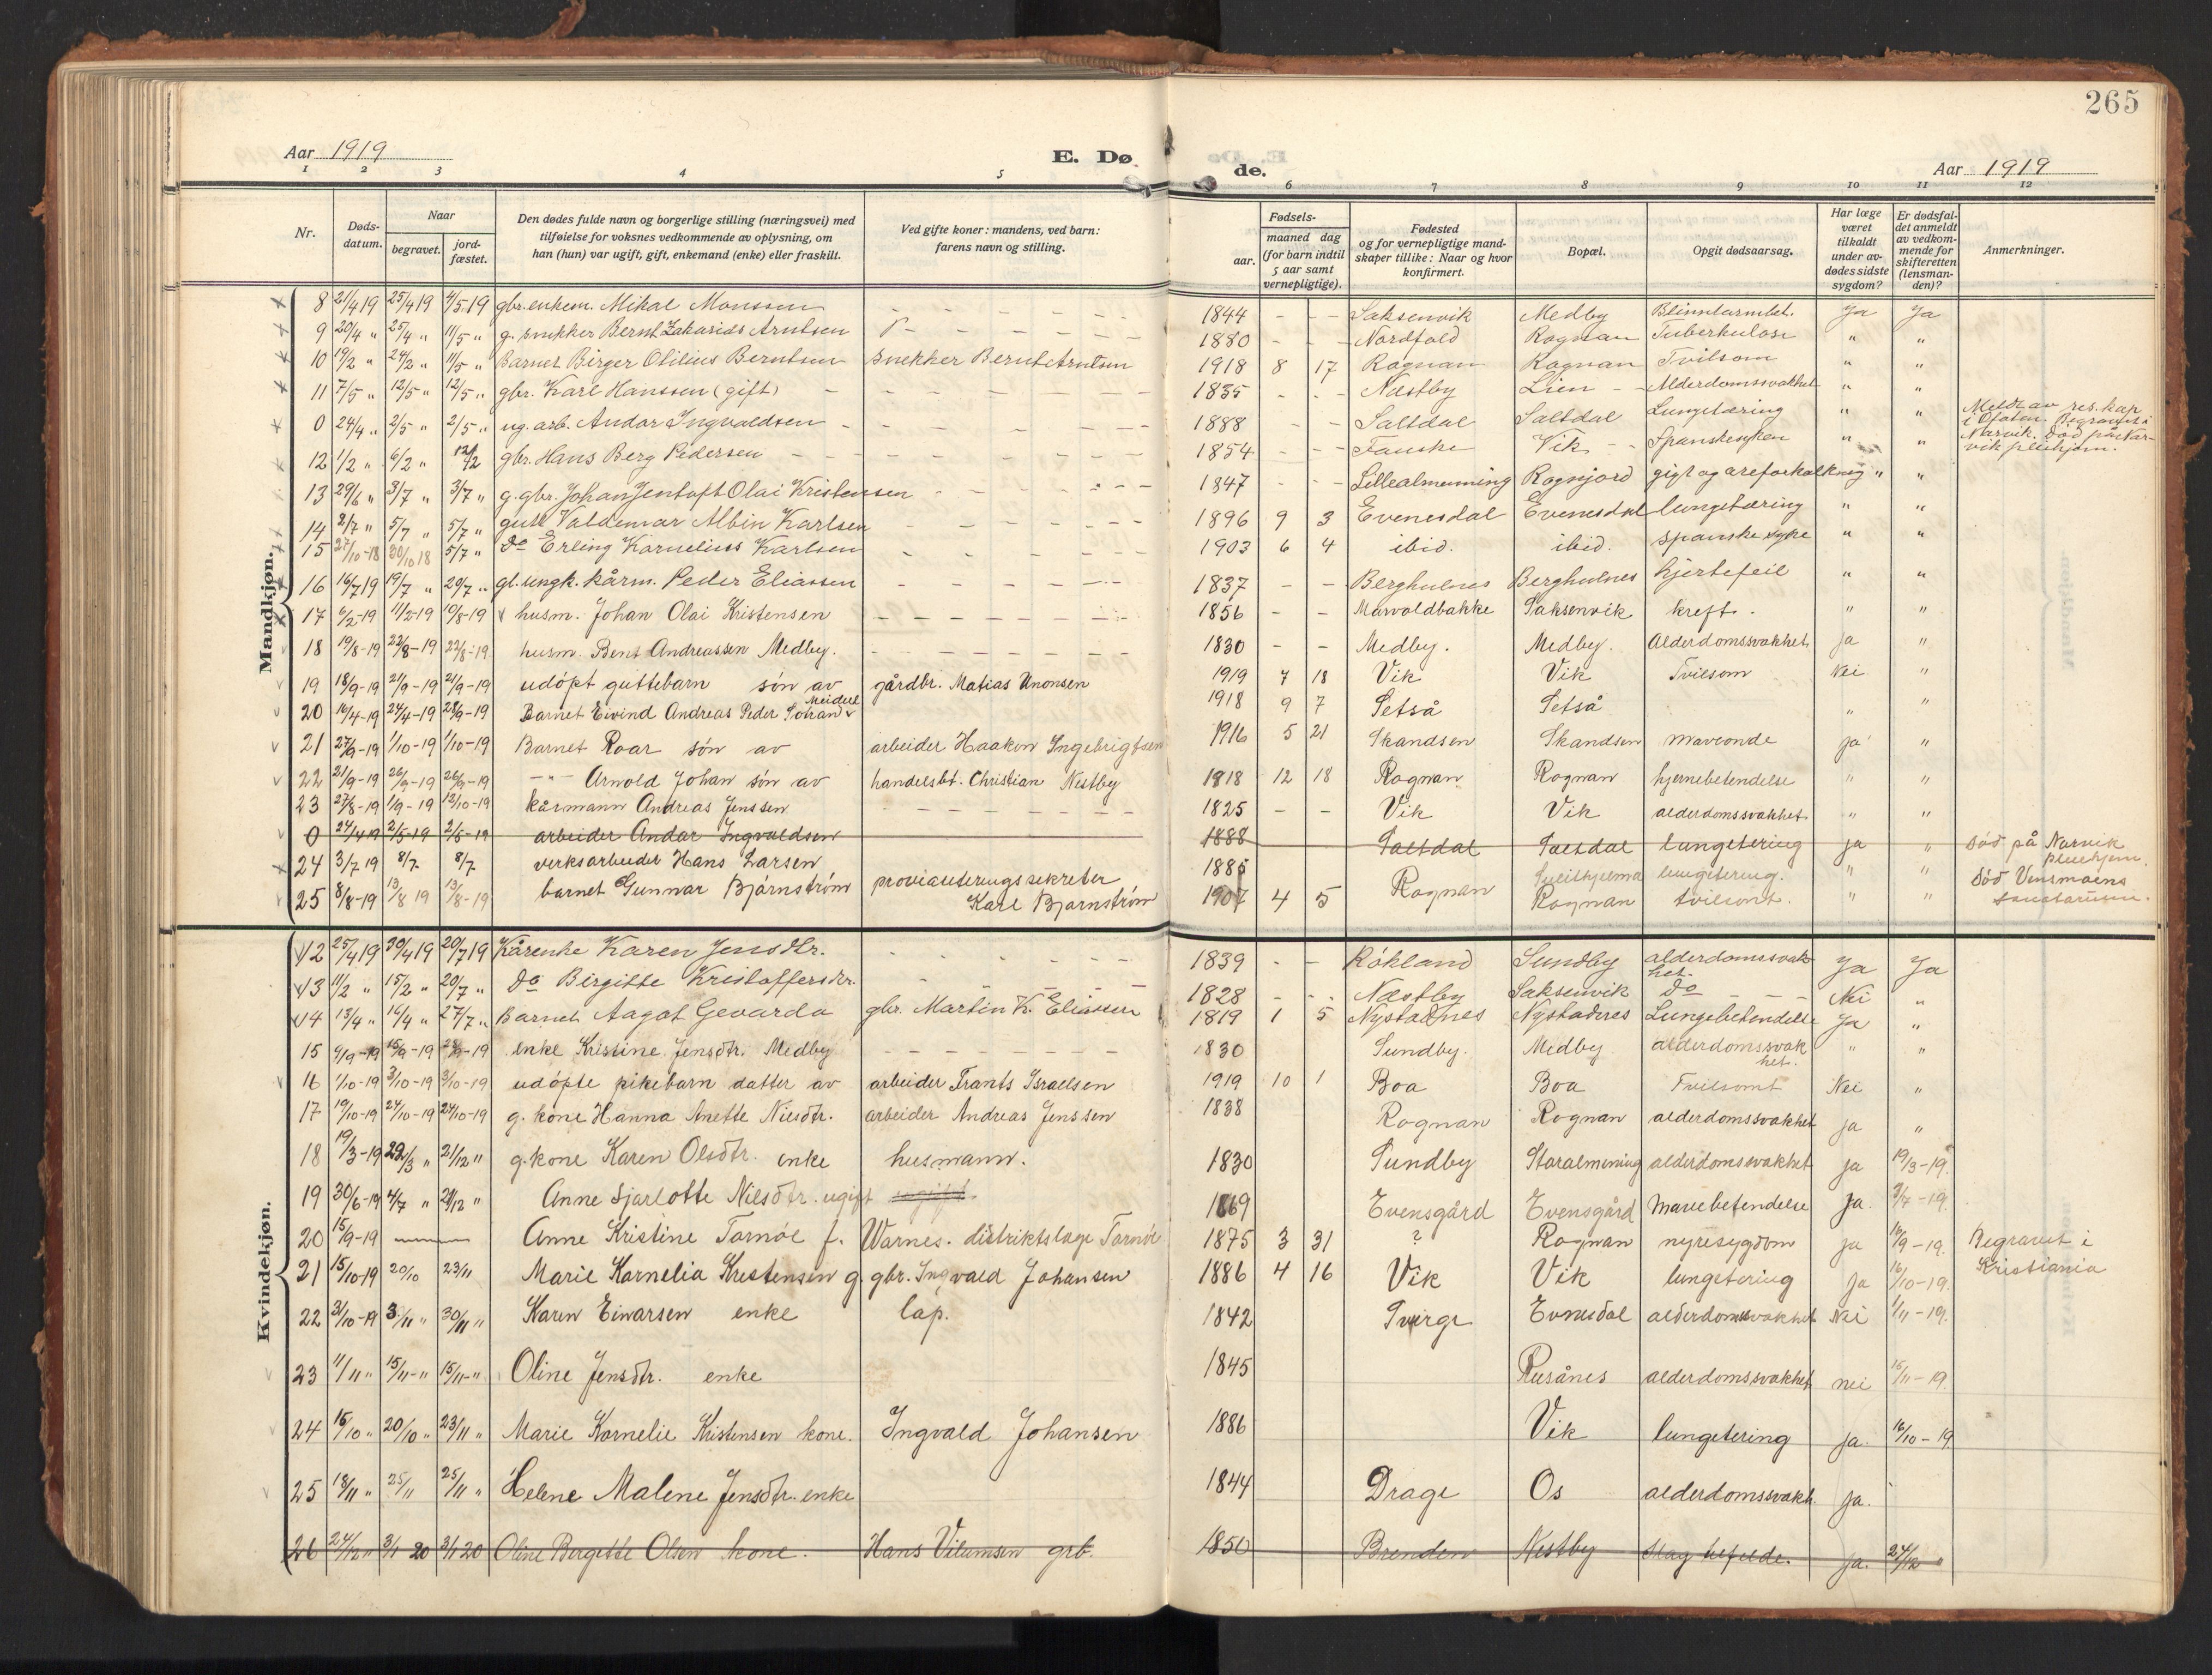 265
Aar 1919
E. Dø
de.
Aar 1919
1 2 3 4 5 6 7 8 9 10 11 12
Nr.
Døds-
datum.
Naar
begravet.
jord-
fæstet.
Den dødes fulde navn og borgerlige stilling (næringsvei) med
tilføielse for voksnes vedkommende av oplysning, om
han (hun) var ugift, gift, enkemand (enke) eller fraskilt.
Ved gifte koner: mandens, ved barn:
farens navn og stilling.
Fødsels-
aar.
maaned dag
(for barn indtil
5 aar samt
vernepligtige).
Fødested
og for vernepligtige mand-
skaper tillike: Naar og hvor
konfirmert.
Bopæl.
Opgit dødsaarsag.
Har læge
været
tilkaldt
under av-
dødes sidste
sygdom?
Er dødsfal-
det anmeldt
av vedkom-
mende for
skifteretten
(lensman-
den)?
Anmerkninger.
Mandkjøn.
8 21/4 19 25/4 19 4/5.19 gbr. enkem. Mikal Monssen 1844 - - Saksenvik Medby Blindtarmbet. Ja Ja
9 20/4 " 25/4 " 11/5 " g. snekker Bernt Zakarias Arntsen 1880 - - Nordfold Rognan Tuberkulose " "
10 19/2 " 24/2 " 11/5 " Barnet Birger Otilius Berntsen snekker Bernt Arntsen 1918 8 17 Rognan Rognan Tvilsom " "
11 7/5 " 12/5 " 12/5 " gbr. Karl Hanssen (gift) 1835 - - Næstby Lien Alderdomssvakhet " "
0 24/4 " 2/5 " 2/5 " ug. arb. Andor Ingvaldsen 1888 - - Saltdal Saltdal Lungetæring " " Meldt av res. kap
i Ofoten. Begravet i
Narvik. Død på Nar-
vik pleiehjem.
12 1/2 " 6/2 " 12/2 gbr. Hans Berg Pedersen 1854 - - Fauske Vik Spanskesyken " "
13 29/6 " 3/7 " 3/7 " g. gbr. Johan Jentoft Olai Kristensen 1847 - - Lillealmenning Rognjord gigt og areforkalkning " "
14 2/7 " 5/7 " 5/7 " gutt Valdemar Albin Karlsen 1896 9 3 Evenesdal Evenesdal lungetæring " "
15 27/10-18 30/10 18 5/7 " do Erling Kornelius Karlsen 1903 6 4 ibid. ibid. spanske syke " "
16 16/7 19 19/7 " 20/7 " gl. ungk. kårm. Peder Eliassen 1837 - - Berghulnes Berghulnes hjertefeil " "
17 6/2-19 11/2-19 10/8-19 husm. Johan Olai Kristensen 1856 - - Marvoldbakke Saksenvik kreft. " "
18 19/8-19 22/8-19 22/8-19 husm. Bent Andreassen Medby. 1830 - - Medby. Medby. Alderdomssvakhet ja "
19 18/9-19 21/9-19 21/9-19 udøpt guttebarn søn av gårdbr. Matias Unonsen 1919 7 18 Vik Vik Tvilsom Nei "
20 16/4-19 24/4-19 28/9-19 Barnet Eivind Andreas Peder 1918 9 7 Setså Setså " "
21 27/9-19 1/10-19 1/10-19 Barnet Roar søn av arbeider Haakon Ingebrigtsen 1916 5 21 Skandsen Skandsen maveonde ja "
22 21/9-19 26/9-19 26/9-19 -"- Arnold Johan søn av handelsbt. Christian Nestby 1918 12 18 Rognan Rognan hjernebetendelse " "
23 27/8-19 1/9-19 12/10-19 kårmann Andreas Jenssen 1825 - - Vik Vik alderdomssvakhet " "
0 24/4 19 2/5-19 2/5-19 arbeider Andor Ingvaldsen 1888 Saltdal Saltdal lungetering ja " Død på Narvik
pleiehjem.
24 3/7 19 8/7 8/7 verksarbeider Hans Larsen 1885 Sulitjelma lungetering. " " Død Vensmoens
25 8/8-19 13/8 19 13/8-19 barnet Gunnar Bjørnstrøm provianteringssekretær
Karl Bjørnstrøm 1907 4 5 Rognan Rognan tvilsomt. " "
Kvindekjøn.
12 25/4 19 30/4 19 20/7 19 Kårenke Karen Jensdtr. 1839 - - Røkland Sundby alderdomssvak-
het. Ja Ja
13 11/2 " 15/2 " 20/7 " do Birgitte Kristoffersdr. 1828 - - Næstby Saksenvik do Nei "
14 13/4 " 16/4 " 27/7 " Barnet Aagot Gevarda gbr. Martin K. Eliassen 1819 1 5 Nystadnes Nystadnes Lungebetendelse Ja "
15 4/9-19 15/9-19 28/9-19 enke Kristine Jensdtr. Medby 1830 Sundby. Medby alderdomssvak
het. " "
16 1/10-19 3/10-19 3/10-19 udøpte pikebarn datter av arbeider Frants Israelsen 1919 10 1 Boa Boa Tvilsomt Nei "
17 19/10-19 24/10-19 24/10-19 g. kone Hanna Anette Nilsdtr. arbeider Andreas Jenssen 1838 Rognan Rognan alderdomssvakhet ja "
18 19/3-19 22/3 " 21/12 " g. kone Karen Olsdtr. enke husmann. 1830 Sundby Storalmening alderdomssvakhet ja 19/3-19.
19 30/6-19 4/7 " 21/12 " Anne Sjarlotte Nilsdtr. ugift ugift. 1869 Evensgård Evensgård Mavebetendelse ja. 3/7-19.
20 15/9-19 Anne Kristine Tornøe f. Warnes. distriktslæge Tornøe 1875 3 31 ? Rognan nyresygdom ja 16/9-19. Begravet i
Kristiania
21 15/10-19 20/10 23/11 Marie Kornelia Kristensen g. gbr. Ingvald Johansen 1886 4 16 Vik Vik lungetering ja 16/10-19.
22 31/10-19 3/11 " 30/11 " Karen Einarsen enke lap. 1842 Sverge Evnesdal alderdomssvakhet Nei 1/11-19.
23 11/11 " 15/11-" 15/11-" Oline Jensdtr. enke 1845 Rusånes alderdomssvakhet nei 15/11-19.
24 15/10 " 20/10 " 23/11 " Marie Kornelie Kristensen kone. Ingvald Johansen 1886 Vik lungetering ja. 16/10-19
25 18/11 " 25/11 25/11 " Helene Malene Jensdtr. enke 1844 Drage Os alderdomssvakh. ja.
26 24/12 " 3/1 20 3/1 20 Oline Bergitte Olsen kone. Hans Vilumsen grb. 1850 Brenden Nestby Slag ja. 24/12 "